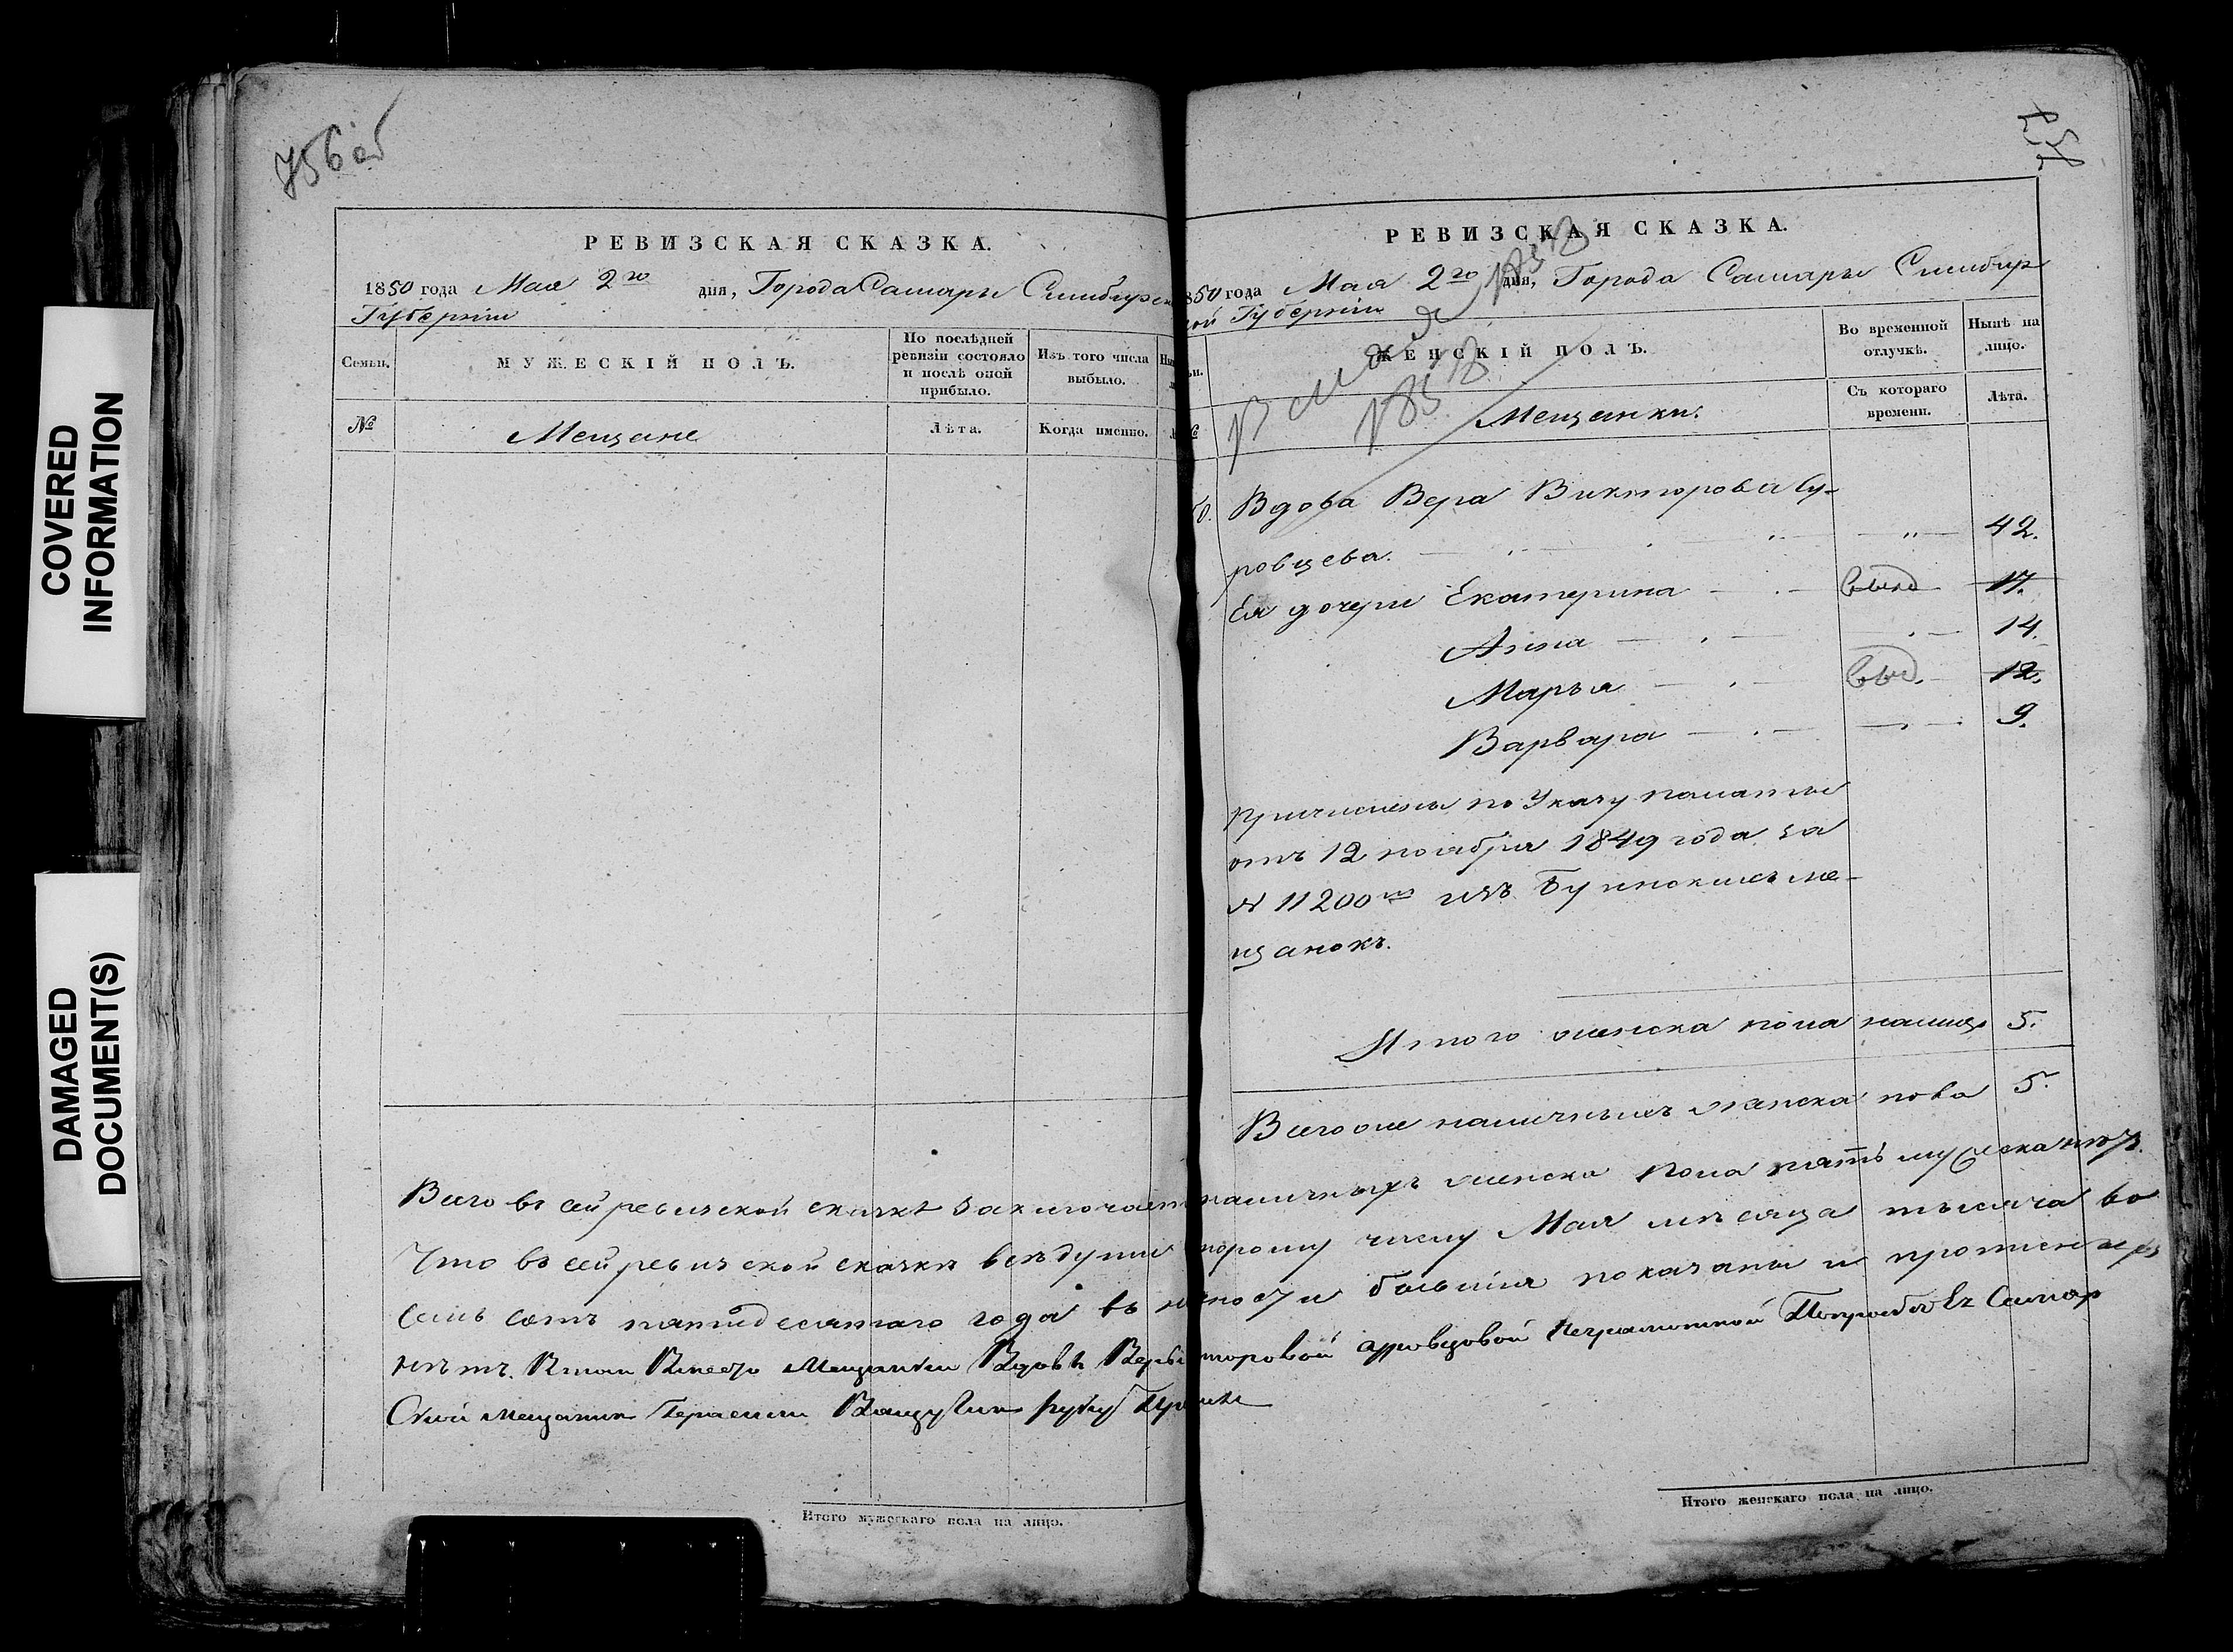 COVERED
INFORMATION
DAMAGED
DOCUMENT(S)
756 об
РЕВИЗСКАЯ СКАЗКА.
1850 года Мая 2го дня, Города Самары Симбирск
Губернiи
Семьи.
МУЖЕСКIЙ ПОЛЪ.
По послѣдней
ревизiи состояло
и послѣ оной
прибыло.
Изъ того числа
выбыло.
№
Мещане
Лѣта.
Когда именно.
Итого мужескаго пола на лицо.
РЕВИЗСКАЯ СКАЗКА.
850 года Мая 2го дня, Города Самары Симбир
Губернiи
ЖЕНСКIЙ ПОЛЪ.
Во временной
отлучкѣ.
Нынѣ на
лицо.
Мещанки.
Съ котораго
времени.
Лѣта.
Вдова Вера Викторова Су-
ровцева. 42.
Ея дочери Екатерина 17.
Анна 14.
Марья 12.
Варвара 9.
Причислены по Указу палаты
отъ 12 ноября 1849 года за
№ 11200 изъ Буинскихъ ме-
щанокъ.
Итого женска пола налицо 5.
Всего же наличныхъ женска пола 5.
Всего въ сей ревизской сказкѣ заключает наличныхъ женска пола пять мужеска нѣтъ.
Что въ сей ревизской сказкѣ всѣ души торому числу Мая мѣсяца тысяча во
семь сотъ пятидесятаго года въ ности бывшiя показаны и прописныхъ
нѣтъ. Вместо Мещанки Вдовы Веры торовой Суровцовой Неграмотной Попрозбѣ Ея Самар
Ской мещанин Герасим руку
Итого женскаго пола на лицо.